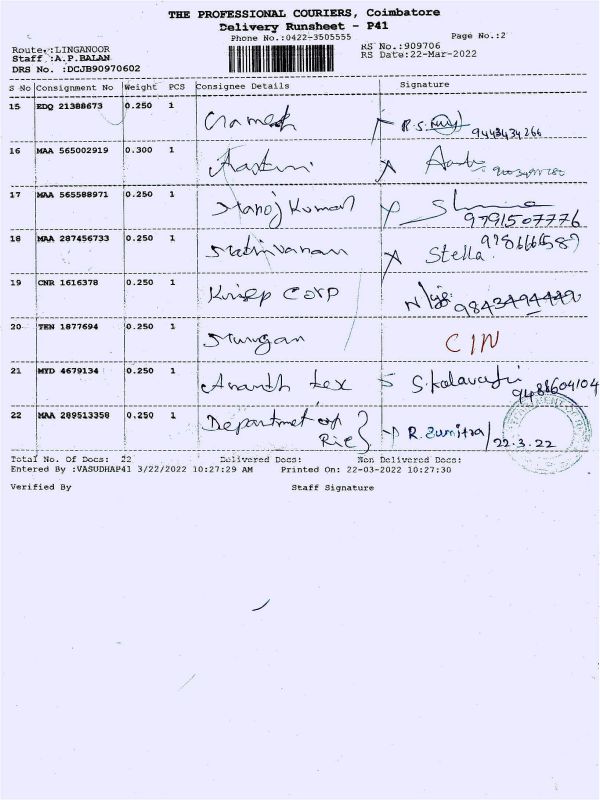 THE PROFESSIONAL COURIERS, Coimbatore
Delivery Runsheet - P41
Phone No.:0422-3505555 Page No.:2
Route.:LINGANOOR RS No.:909706
Staff :A.P.BALAN RS Date:22-Mar-2022
DRS No. :DCJB90970602
S No Consignment No Weight PCS Consignee Details Signature
15 EDQ 21388673 0.250 1 R.S. 9443434266
16 MAA 565002919 0.300 1
17 MAA 565588971 0.250 1 Manoj Kumar 9791507776
18 MAA 287456733 0.250 1 Mathivanan Stella
19 CNR 1616378 0.250 1 Corp
20 TEN 1877694 0.250 1 Murugan CIN
21 MYD 4679134 0.250 1 Ananth tex S.Kalavathi 9488604104
22 MAA 289513358 0.250 1 Department of R.Sumitra/22.3.22
Total No. Of Docs: 22 Delivered Docs: Non Delivered Docs:
Entered By :VASUDHAP41 3/22/2022 10:27:29 AM Printed On: 22-03-2022 10:27:30
Verified By Staff Signature